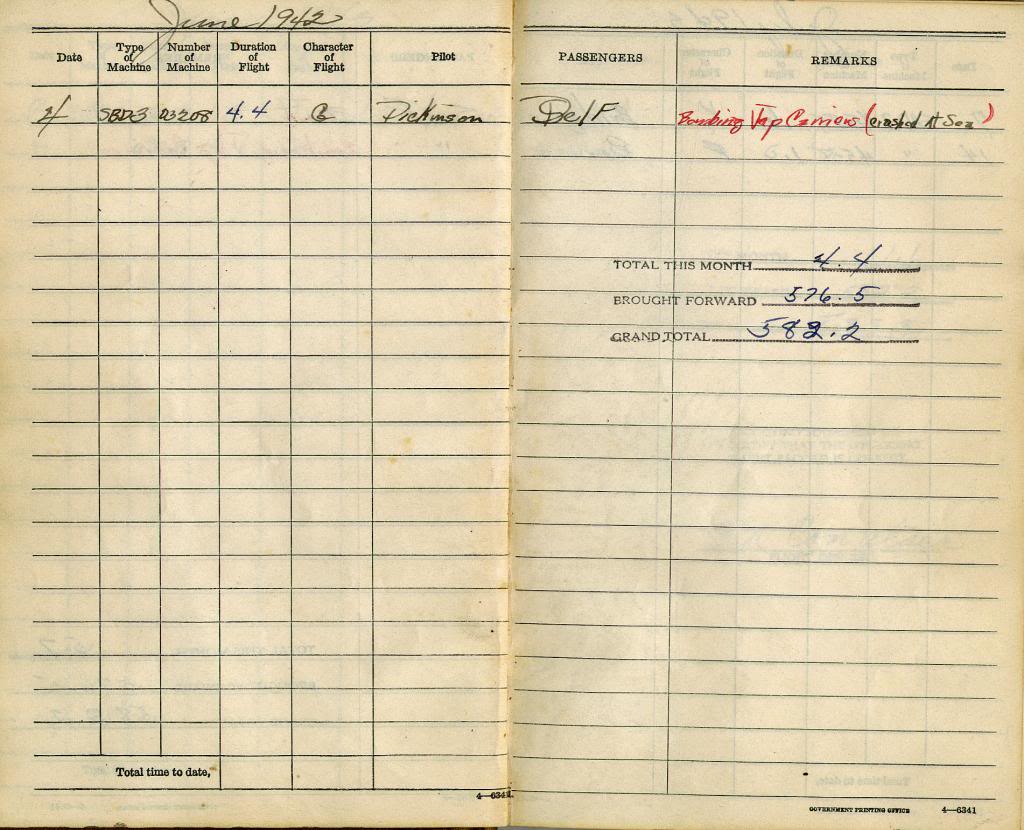 June 1942
Date Type of Machine Number of Machine Duration of Flight Character of Flight Pilot PASSENGERS REMARKS
4 SBD3 03208 4.4 G Dickinson Self Bombing Jap Carriers (crashed At Sea)
TOTAL THIS MONTH 4.4
BROUGHT FORWARD 576.5
GRAND TOTAL 582.2
Total time to date,
4—6341
GOVERNMENT PRINTING OFFICE 4—6341